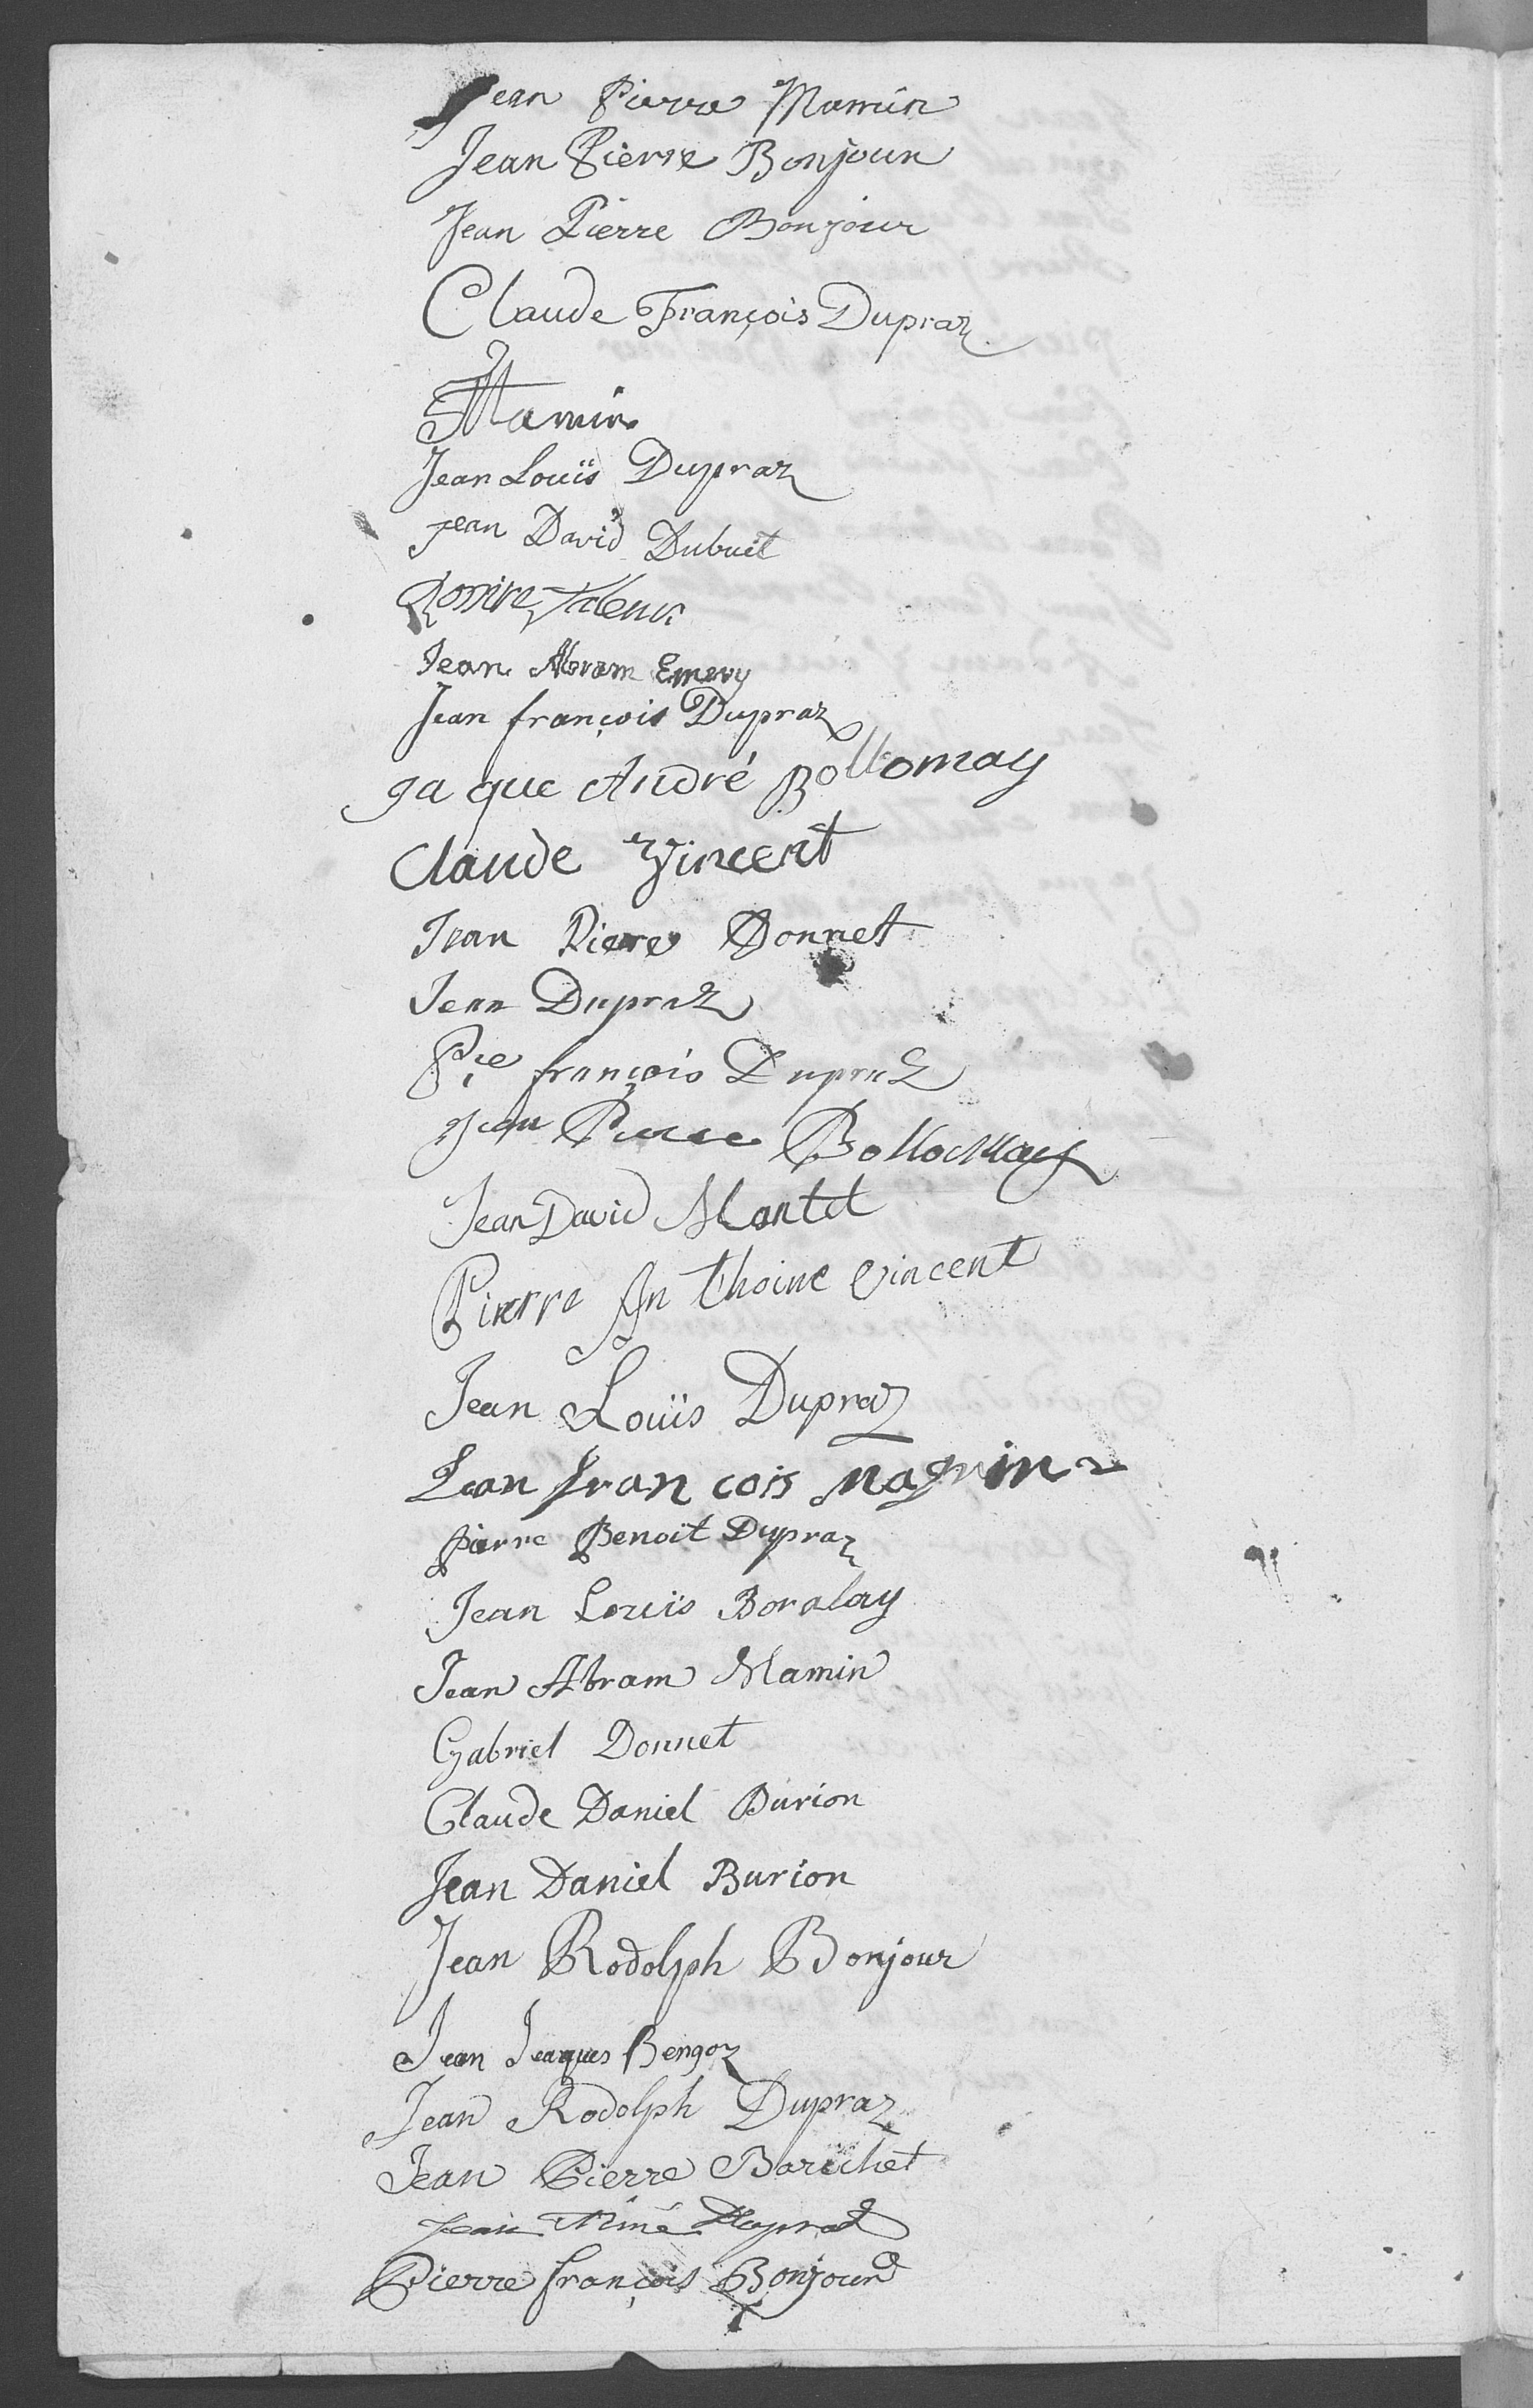 Jean Pierre Mamin
Jean Pierre Bonjour
Jean Pierre Bonjour
Claude François Dupraz
Mamin
Jean Louïs Dupraz
Jean David Dubuit
Jean Abram Emery
Jean françois Dupraz
Jaque André Bollomay
Claude Vincent
Jean Pierre Donnet
Jean Dupraz
P.re françois Dupraz
Jean Pierre Bollomay
Jean David Mantet
Pierre Anthoine Vincent
Jean Louïs Dupraz
Jean francois Mamin
Pierre Benoit Dupraz
Jean Louïs Boralay
Jean Abram Mamin
Gabriel Donnet
Claude Daniel Burion
Jean Daniel Burion
Jean Rodolph Bonjour
Jean Jeaques Bengoz
Jean Rodolph Dupraz
Jean Pierre Barichet
Jean Aimé Dupraz
Pierre françois Bonjour